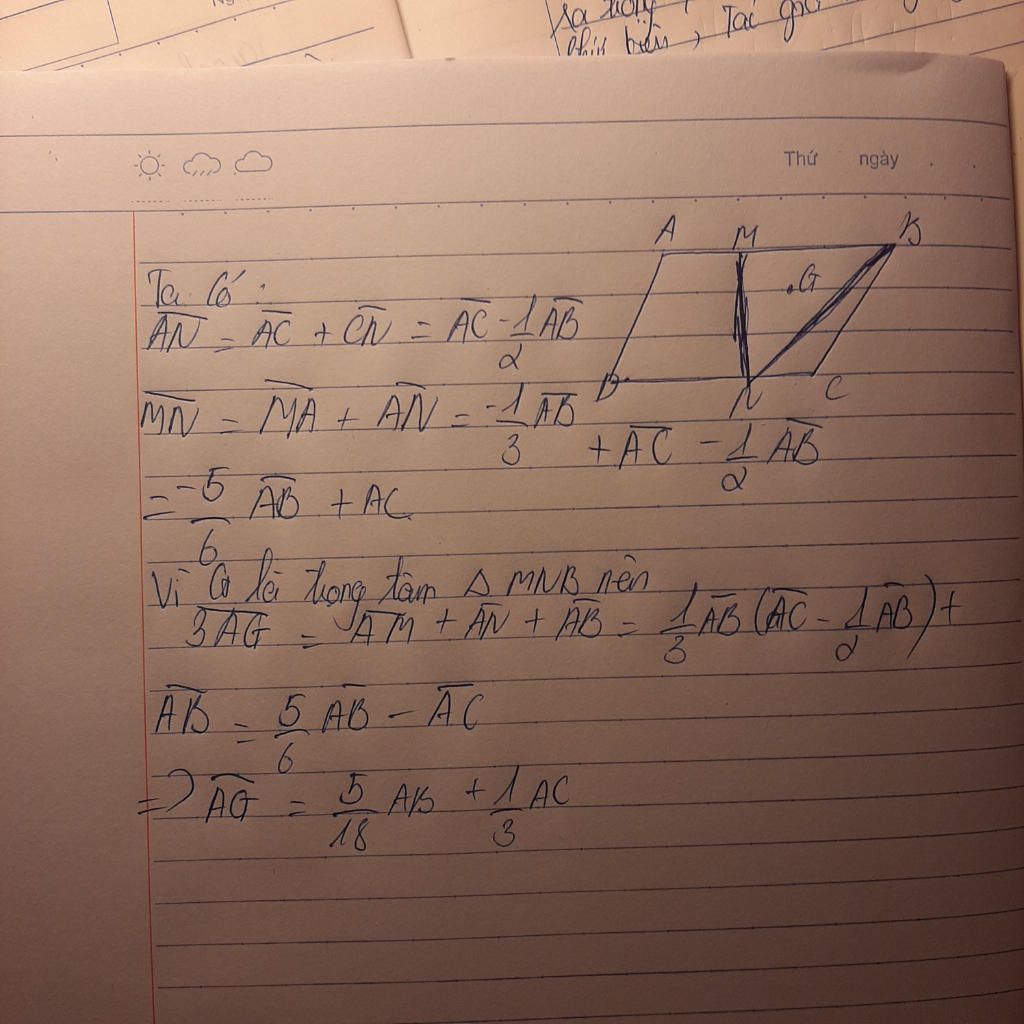 sa mộng
, Tác giả
Thứ ngày
A M B
G
D N C
Ta có:
AN = AC + CN = AC - 1/2 AB
MN = MA + AN = -1/3 AB + AC - 1/2 AB
= -5/6 AB + AC
Vì G là trọng tâm Δ MNB nên
3AG = AM + AN + AB = 1/3 AB (AC - 1/2 AB) +
AB = 5/6 AB - AC
=> AG = 5/18 AB + 1/3 AC